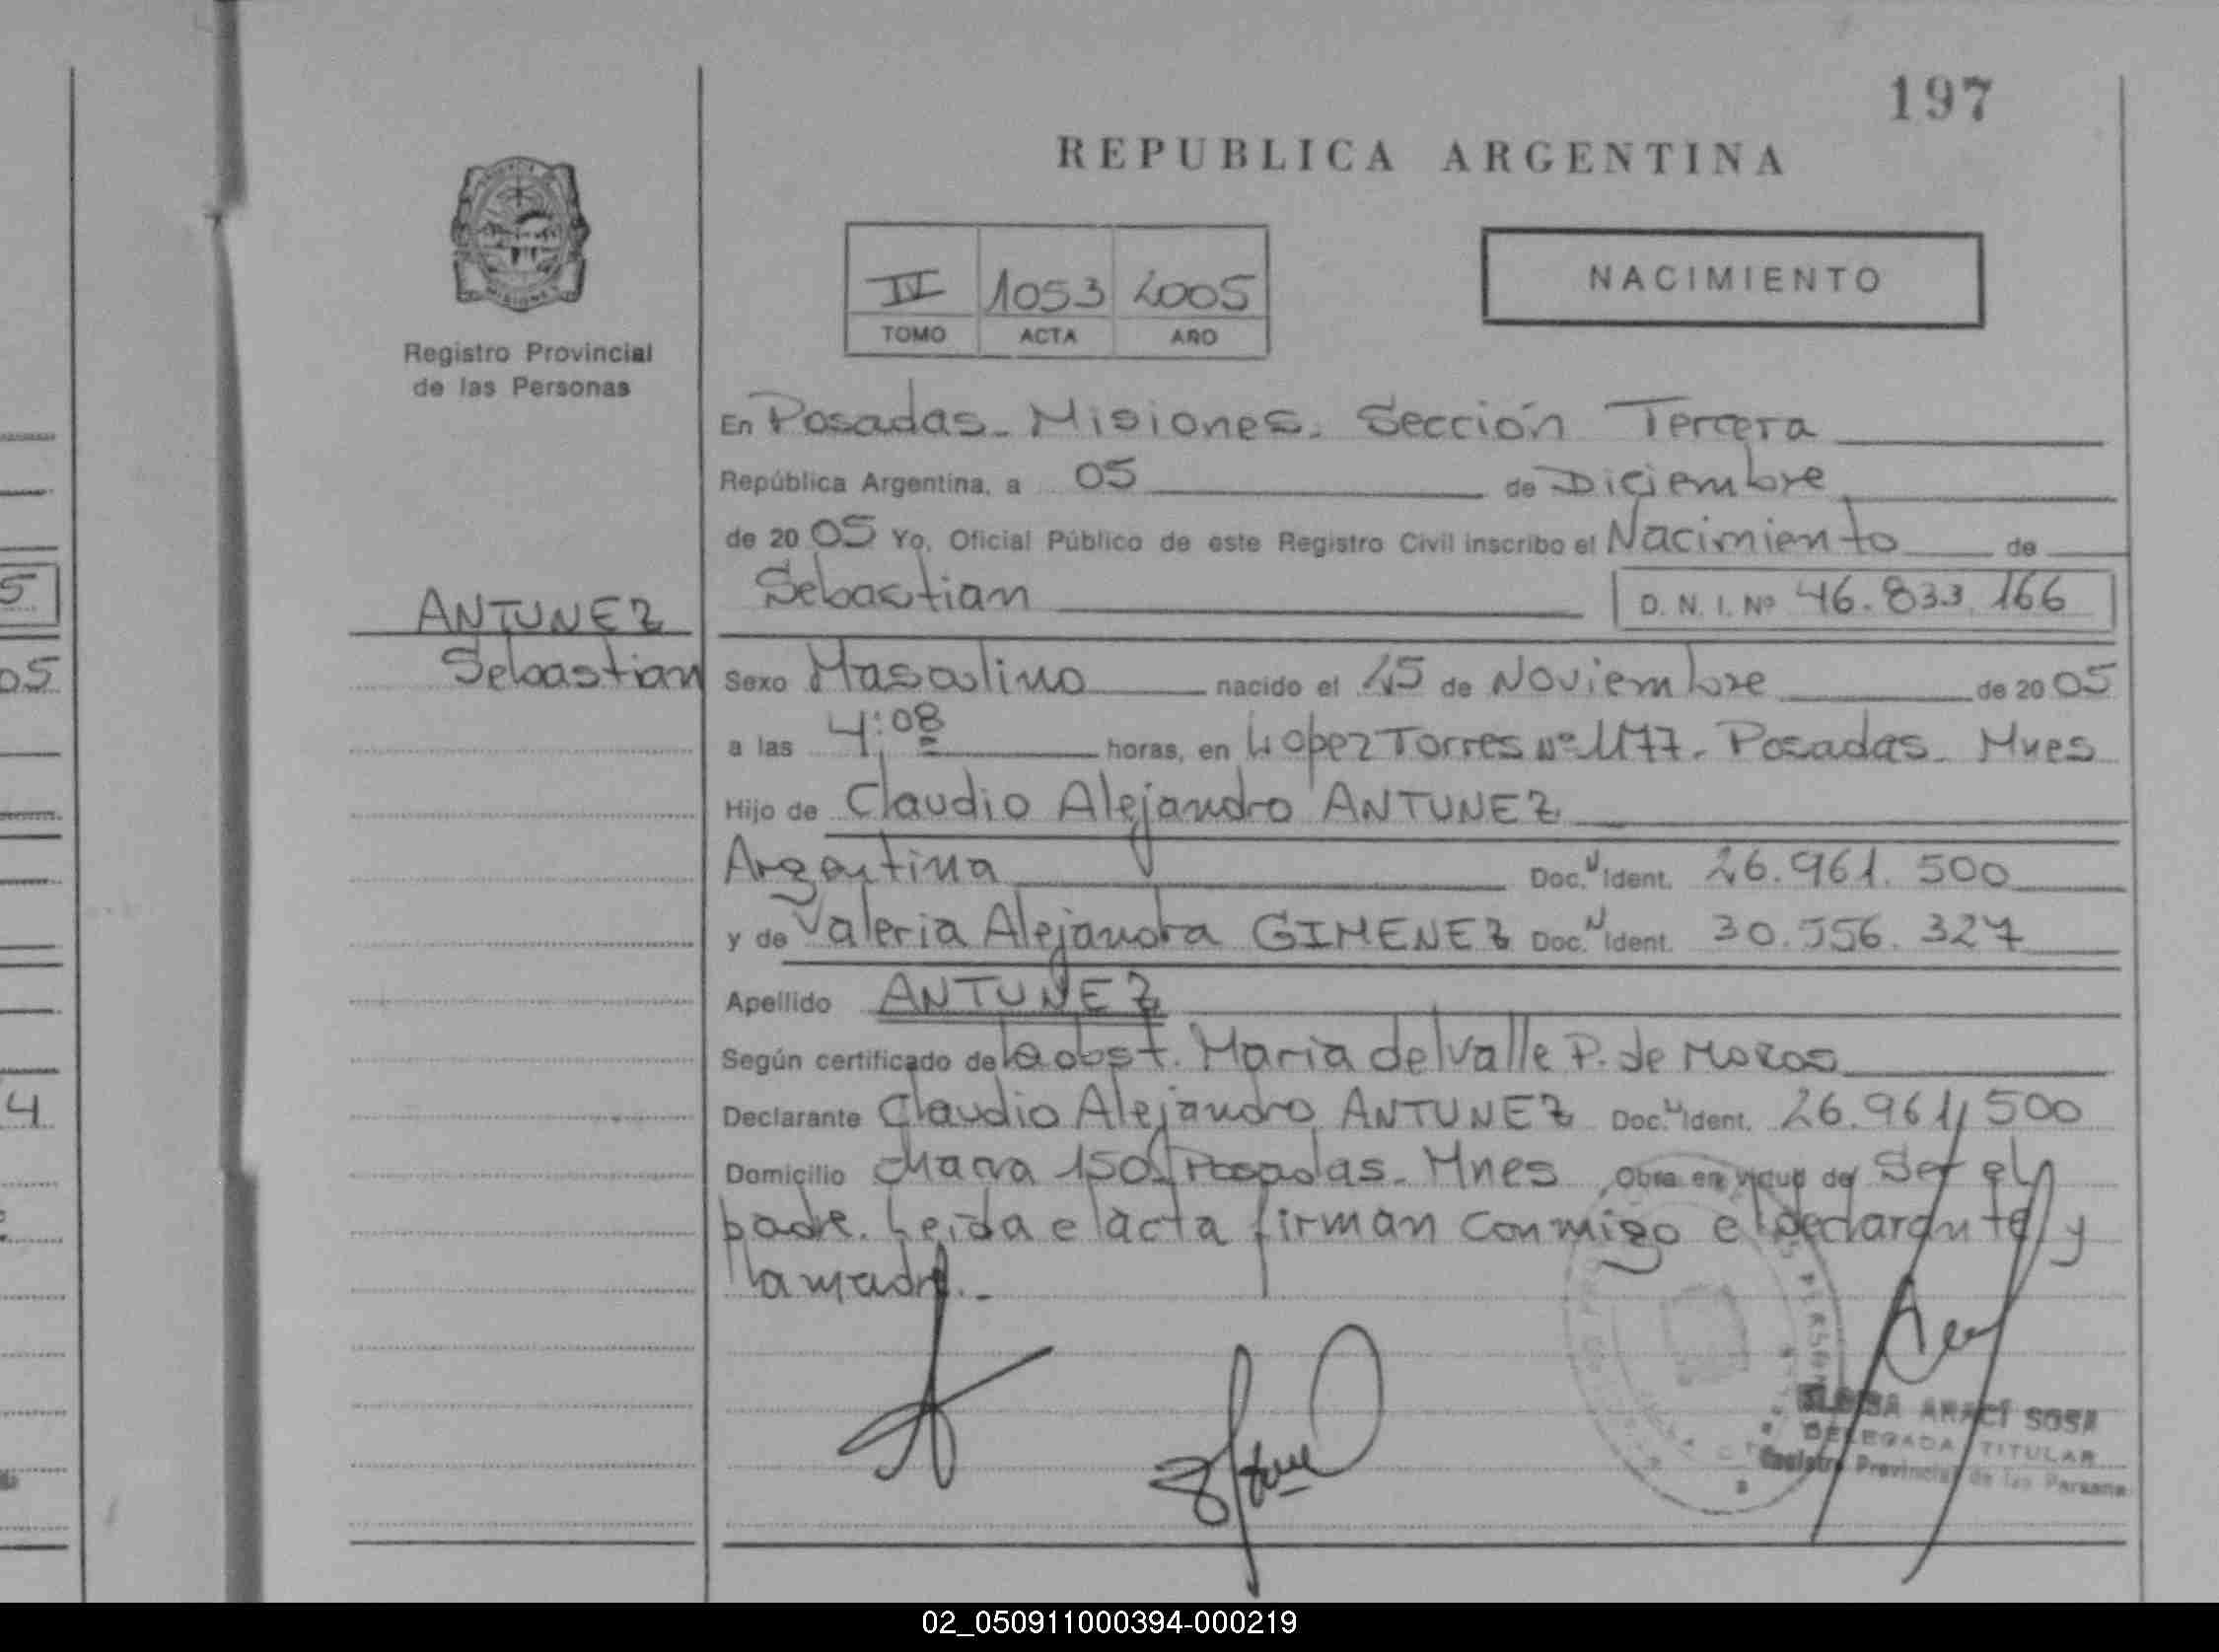 197
REPUBLICA ARGENTINA
IV 1053 2005
TOMO ACTA AÑO
NACIMIENTO
Registro Provincial
de las Personas
En Posadas - Misiones. Sección Tercera
República Argentina, a 05 de Diciembre
de 2005 Yo, Oficial Público de este Registro Civil inscribo el Nacimiento de
Sebastian D. N. I. Nº 46.833.166
ANTUNEZ
Sebastian
Sexo Masculino nacido el 25 de Noviembre de 2005
a las 4:08 horas, en López Torres Nº 1177. Posadas - Mnes
Hijo de Claudio Alejandro ANTUNEZ
Argentina Doc. N Ident. 26.961.500
y de Valeria Alejandra GIMENEZ Doc. N Ident. 30.556.327
Apellido ANTUNEZ
Según certificado de la obst. Maria del Valle P. de
Declarante Claudio Alejandro ANTUNEZ Doc. N Ident. 26.961.500
Domicilio chacra 150. Posadas. Mnes Obra en virtud de Ser el
padre. Leida el acta firman conmigo el declarante y
la madre.-
5
05
4
ARACÍ SOSA
DELEGADA TITULAR
Registro Provincial de las Personas
02_050911000394-000219